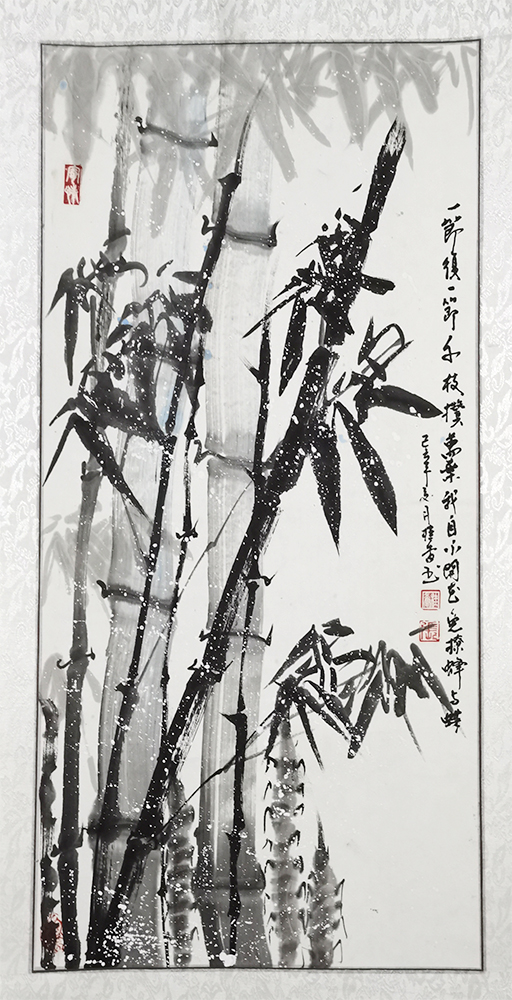 一節復一節千枝攢萬葉我自不開花免撩蜂与蝶
己丑年